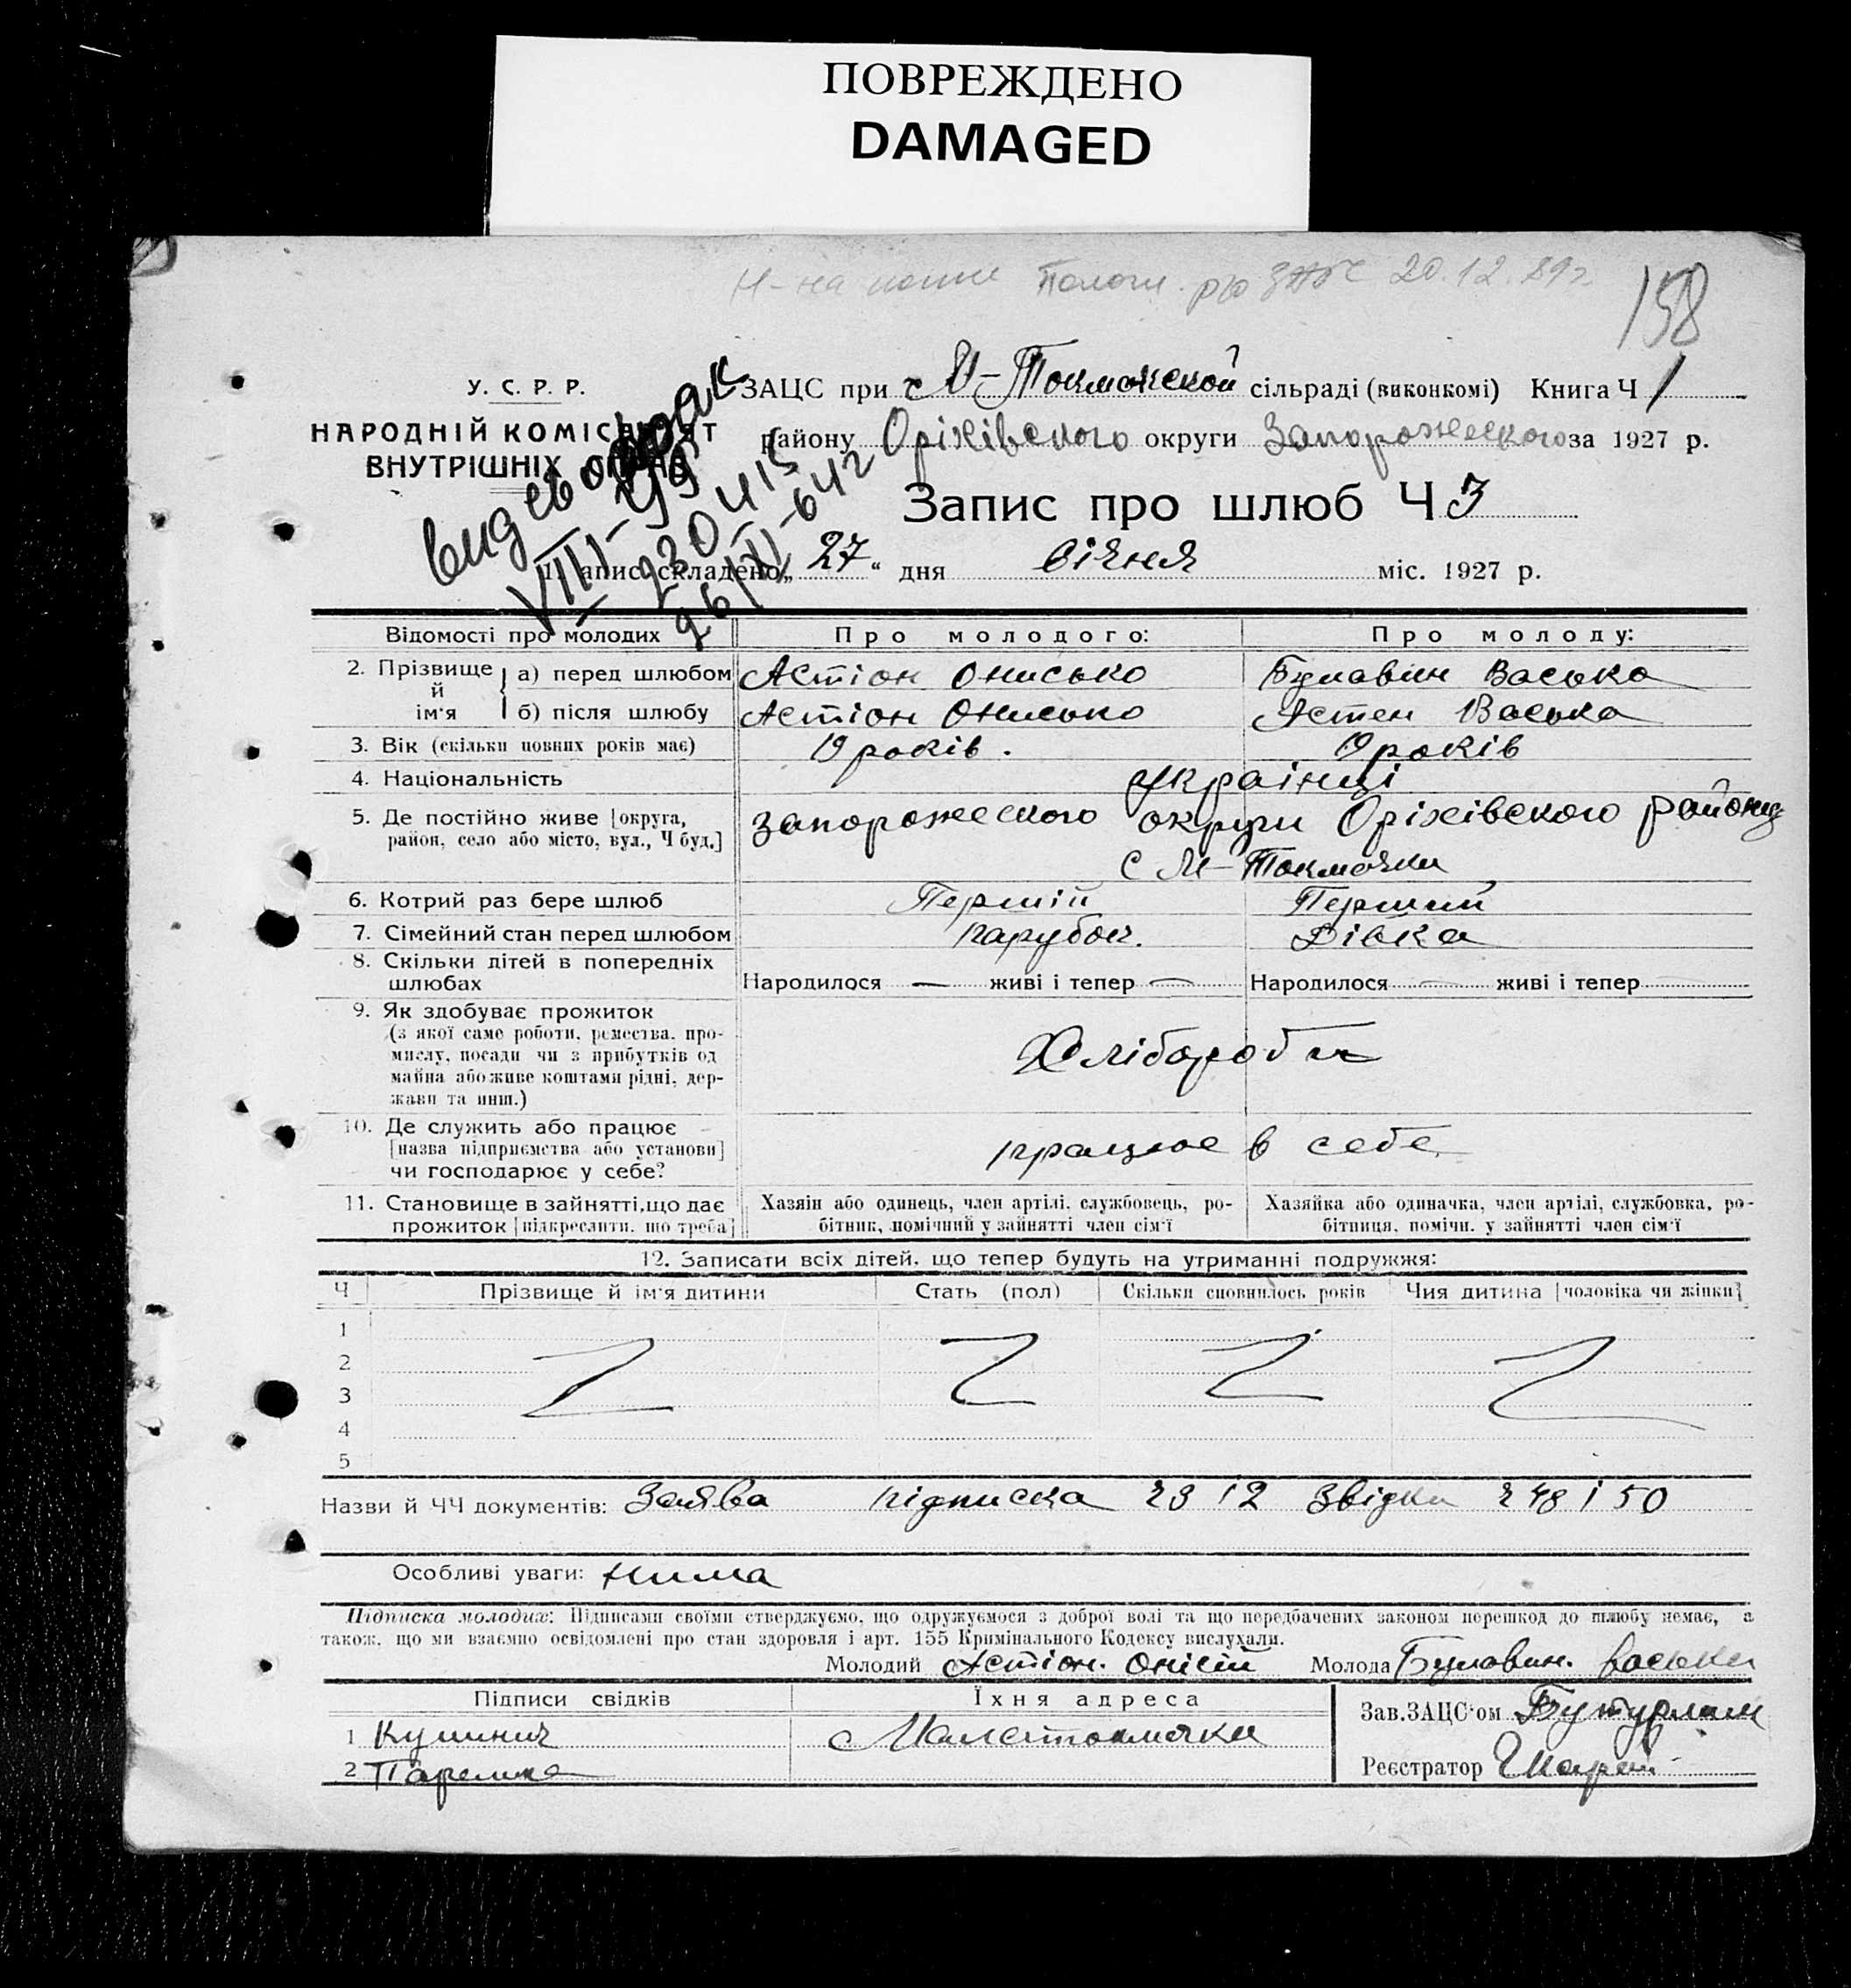 ПОВРЕЖДЕНО
DAMAGED
20.12.89г.
158
У. С. Р. Р.
НАРОДНІЙ КОМІСАРІЯТ
ВНУТРІШНІХ СПРАВ
ЗАЦС при с М-Токмакской сільраді (виконкомі) Книга Ч 1
району Оріхівского округи Запорожеского за 1927 р.
Запис про шлюб Ч 3
1. Запис складено „27“ дня січня міс. 1927 р.
Відомості про молодих
Про молодого:
Про молоду:
2. Прізвище й ім'я
а) перед шлюбом Астіон Онисько Булавин Васька
б) після шлюбу Астіон Онисько Астен Васька
3. Вік (скільки повних років має) 19 років. 19 років
4. Національність українці
5. Де постійно живе [округа, район, село або місто, вул., Ч буд.] запорожеского округи Оріхівского району
с М-Токмачки
6. Котрий раз бере шлюб Першій Перший
7. Сімейний стан перед шлюбом парубок. Дівка
8. Скільки дітей в попередніх шлюбах
Народилося — живі і тепер — Народилося — живі і тепер
9. Як здобуває прожиток
(з якої саме роботи, ремества, про-
мислу, посади чи з прибутків од
майна або живе коштами рідні, дер-
жави та инш.)
Хлібороби
10. Де служить або працює
[назва підприємства або установи]
чи господарює у себе?
працює в себе
11. Становище в зайнятті, що дає
прожиток [підкреслити, що треба]
Хазяін або одинець, член артілі, службовець, ро-
бітник, помічний у зайнятті член сім'ї
Хазяйка або одиначка, член артілі, службовка, ро-
бітниця, помічн. у зайнятті член сім'ї
12. Записати всіх дітей, що тепер будуть на утриманні подружжя:
Ч Прізвище й ім'я дитини Стать (пол) Скільки сповнилось років Чия дитина [чоловіка чи жінки]
1
2
3
4
5
Назви й ЧЧ документів: Заява підписка ч 3 і 2 Звідки ч 48 і 50
Особливі уваги: нима
Підписка молодих: Підписами своїми стверджуємо, що одружуємося з доброї волі та що передбачених законом перешкод до шлюбу немає, а
також, що ми взаємно освідомлені про стан здоровля і арт. 155 Кримінального Кодексу вислухали.
Молодий Астіон. Онісій Молода Булавин. Васька
Підписи свідків
Їхня адреса
Зав.ЗАЦС'ом Бутурлим
1 Кушнич
2
Реєстратор